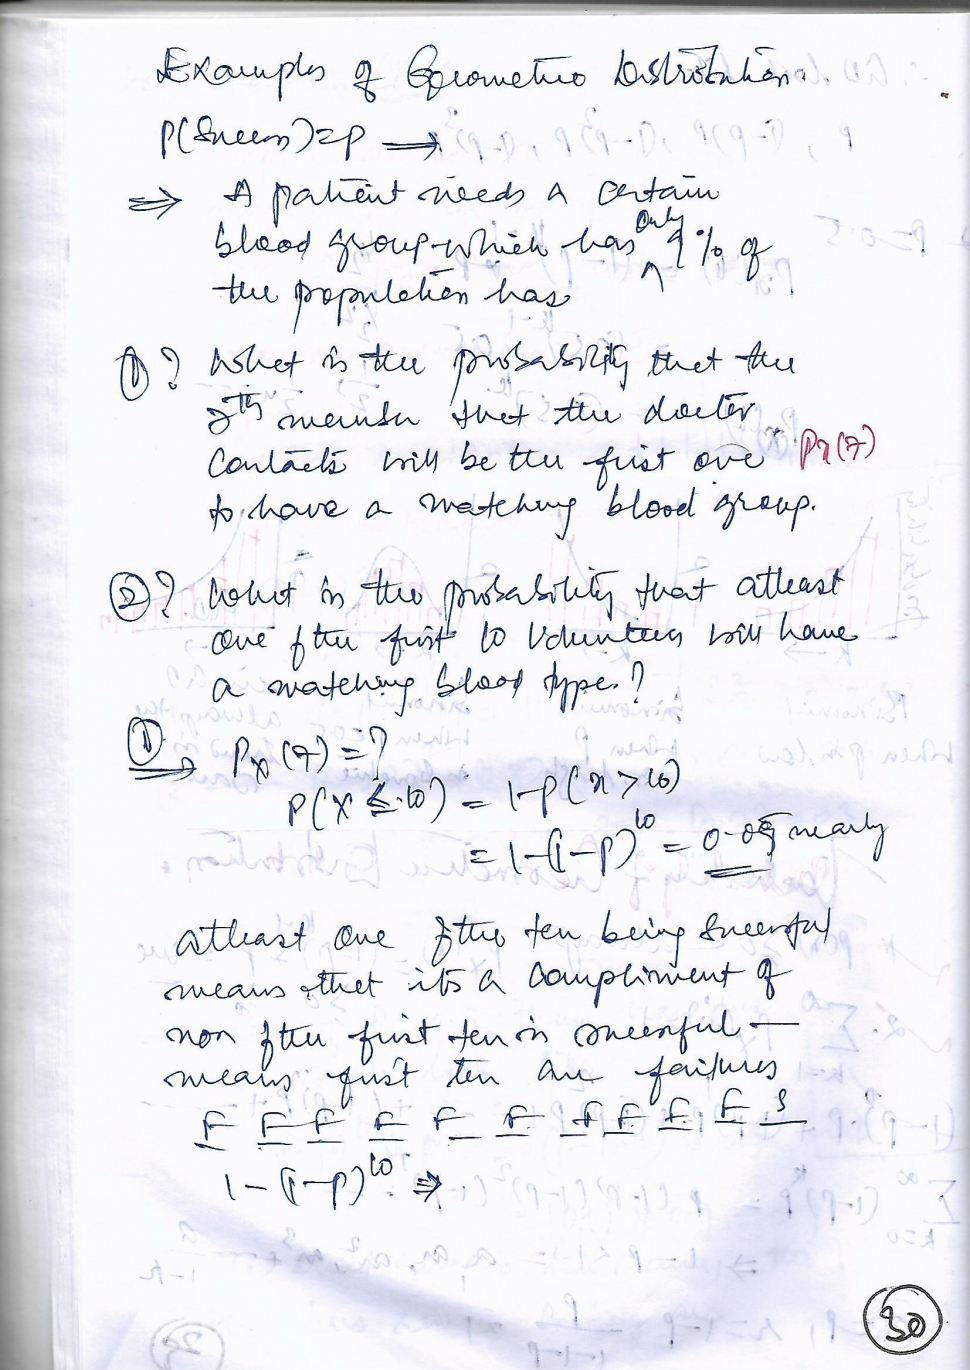 Examples of Geometric Distribution.
P(Success)=p →
⇒ A patient needs a certain
blood group which has only 9% of
the population has
① ? What is the probability that the
7th member that the doctor
contacts will be the first one Px(7)
to have a matching blood group.
② ? What is the probability that atleast
one of the first 10 volunteers will have
a matching blood type.?
① Px(7) = ?
P(X ≤ 10) = 1-P(x > 10)
= 1-(1-p)^10 = nearly
atleast one of the ten being successful
means that its a compliment of
non of the first ten is successful —
means first ten are failures
F F F F F F F F F F S
1-(1-p)^10 ⇒
30